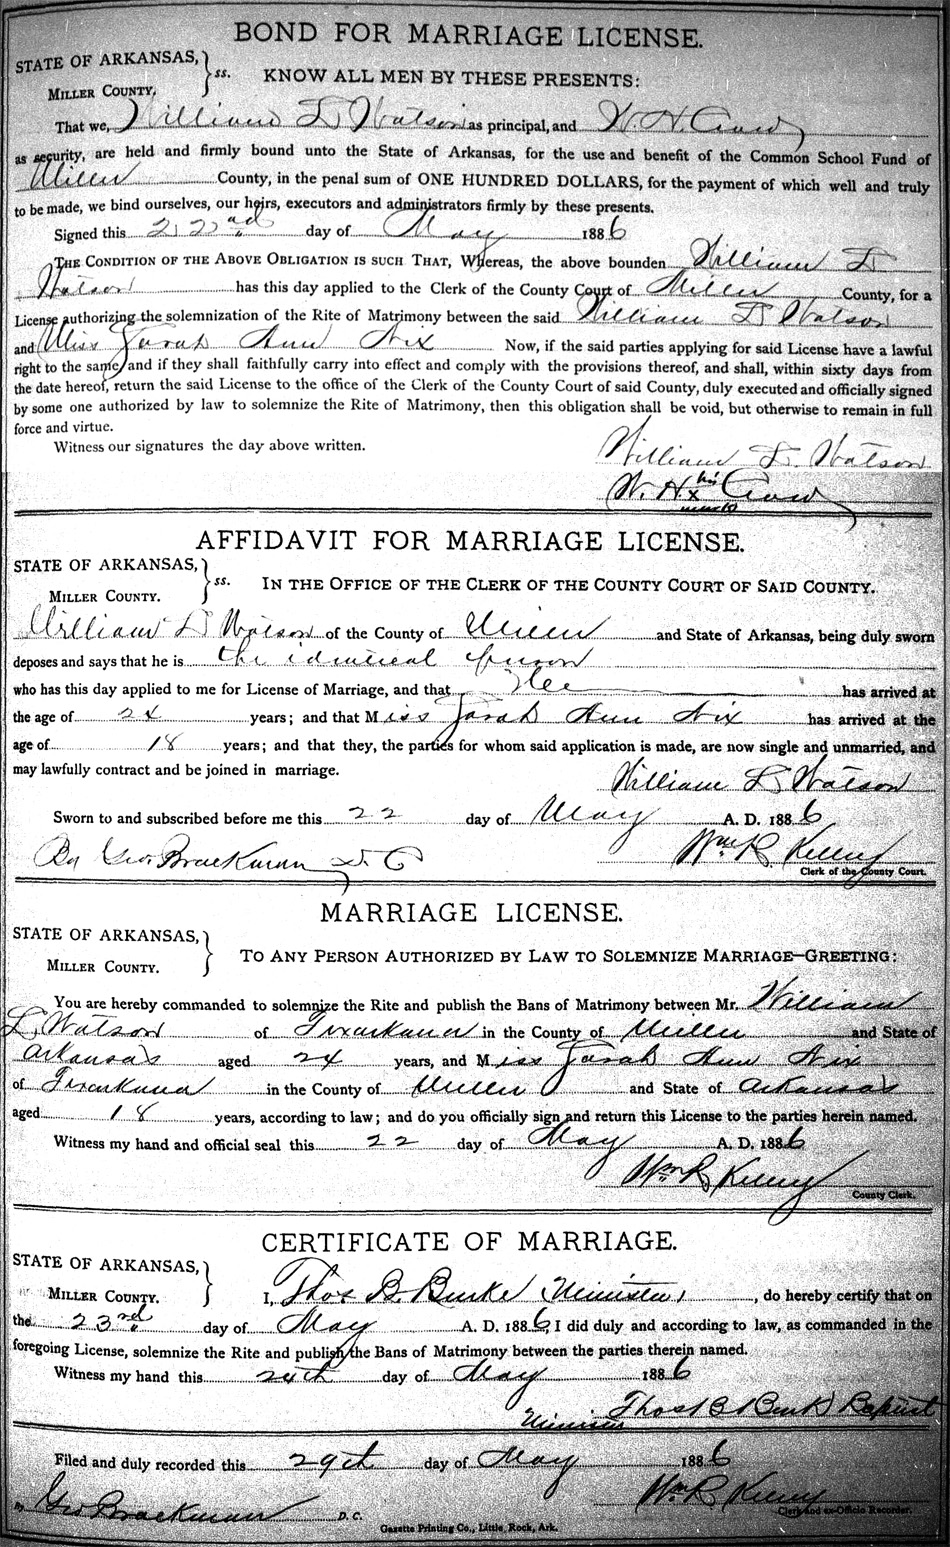 BOND FOR MARRIAGE LICENSE.
STATE OF ARKANSAS, } ss. KNOW ALL MEN BY THESE PRESENTS:
MILLER COUNTY.
That we, William L Watson as principal, and W. H. Crow
as security, are held and firmly bound unto the State of Arkansas, for the use and benefit of the Common School Fund of
Miller County, in the penal sum of ONE HUNDRED DOLLARS, for the payment of which well and truly
to be made, we bind ourselves, our heirs, executors and administrators firmly by these presents.
Signed this 22nd day of May 1886
THE CONDITION OF THE ABOVE OBLIGATION IS SUCH THAT, Whereas, the above bounden William L
Watson has this day applied to the Clerk of the County Court of Miller County, for a
License authorizing the solemnization of the Rite of Matrimony between the said William L Watson
and Miss Sarah Ann Nix Now, if the said parties applying for said License have a lawful
right to the same, and if they shall faithfully carry into effect and comply with the provisions thereof, and shall, within sixty days from
the date hereof, return the said License to the office of the Clerk of the County Court of said County, duly executed and officially signed
by some one authorized by law to solemnize the Rite of Matrimony, then this obligation shall be void, but otherwise to remain in full
force and virtue.
Witness our signatures the day above written.
William L. Watson
W. H. his x mark Crow
AFFIDAVIT FOR MARRIAGE LICENSE.
STATE OF ARKANSAS, } ss. IN THE OFFICE OF THE CLERK OF THE COUNTY COURT OF SAID COUNTY.
MILLER COUNTY.
William L Watson of the County of Miller and State of Arkansas, being duly sworn
deposes and says that he is the person
who has this day applied to me for License of Marriage, and that He has arrived at
the age of 24 years; and that Miss Sarah Ann Nix has arrived at the
age of 18 years; and that they, the parties for whom said application is made, are now single and unmarried, and
may lawfully contract and be joined in marriage.
William L Watson
Sworn to and subscribed before me this 22 day of May A. D. 1886
By Geo Brackman D. C Wm R Kelley
Clerk of the County Court.
MARRIAGE LICENSE.
STATE OF ARKANSAS, } TO ANY PERSON AUTHORIZED BY LAW TO SOLEMNIZE MARRIAGE—GREETING:
MILLER COUNTY.
You are hereby commanded to solemnize the Rite and publish the Bans of Matrimony between Mr. William
L. Watson of Texarkana in the County of Miller and State of
Arkansas aged 24 years, and Miss Sarah Ann Nix
of Texarkana in the County of Miller and State of Arkansas
aged 18 years, according to law; and do you officially sign and return this License to the parties herein named.
Witness my hand and official seal this 22 day of May A. D. 1886
Wm R Kelley
County Clerk.
CERTIFICATE OF MARRIAGE.
STATE OF ARKANSAS,
MILLER COUNTY. } I, Thos B. Burke (Minister) , do hereby certify that on
the 23rd day of May A. D. 1886, I did duly and according to law, as commanded in the
foregoing License, solemnize the Rite and publish the Bans of Matrimony between the parties therein named.
Witness my hand this 24th day of May 1886
Thos B Burke Baptist
Minister
Filed and duly recorded this 29th day of May 1886
Wm R Kelley
By Geo Brackman D. C. Clerk and ex-Officio Recorder.
Gazette Printing Co., Little Rock, Ark.